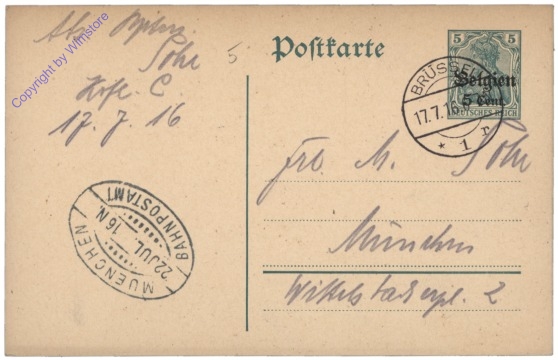 Copyright by Wimstore
5
17. 7. 16
Postkarte
5 5
Belgien
5 Cent.
DEUTSCHES REICH
BRÜSSEL
17.7.16
* 1 r
München
Wittelsbacherpl. 2
MUENCHEN
22 JUL. 16 N.
BAHNPOSTAMT